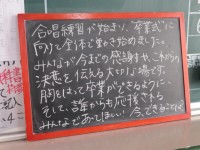 合唱練習が始まり、“卒業式”に
向けて全体で動き始めました。
みんなが今までの感謝や、これからの
決意を伝える大切な場です。
胸をはって卒業ができるように、
そして、誰からも応援される
みんなであってほしい！今、できること